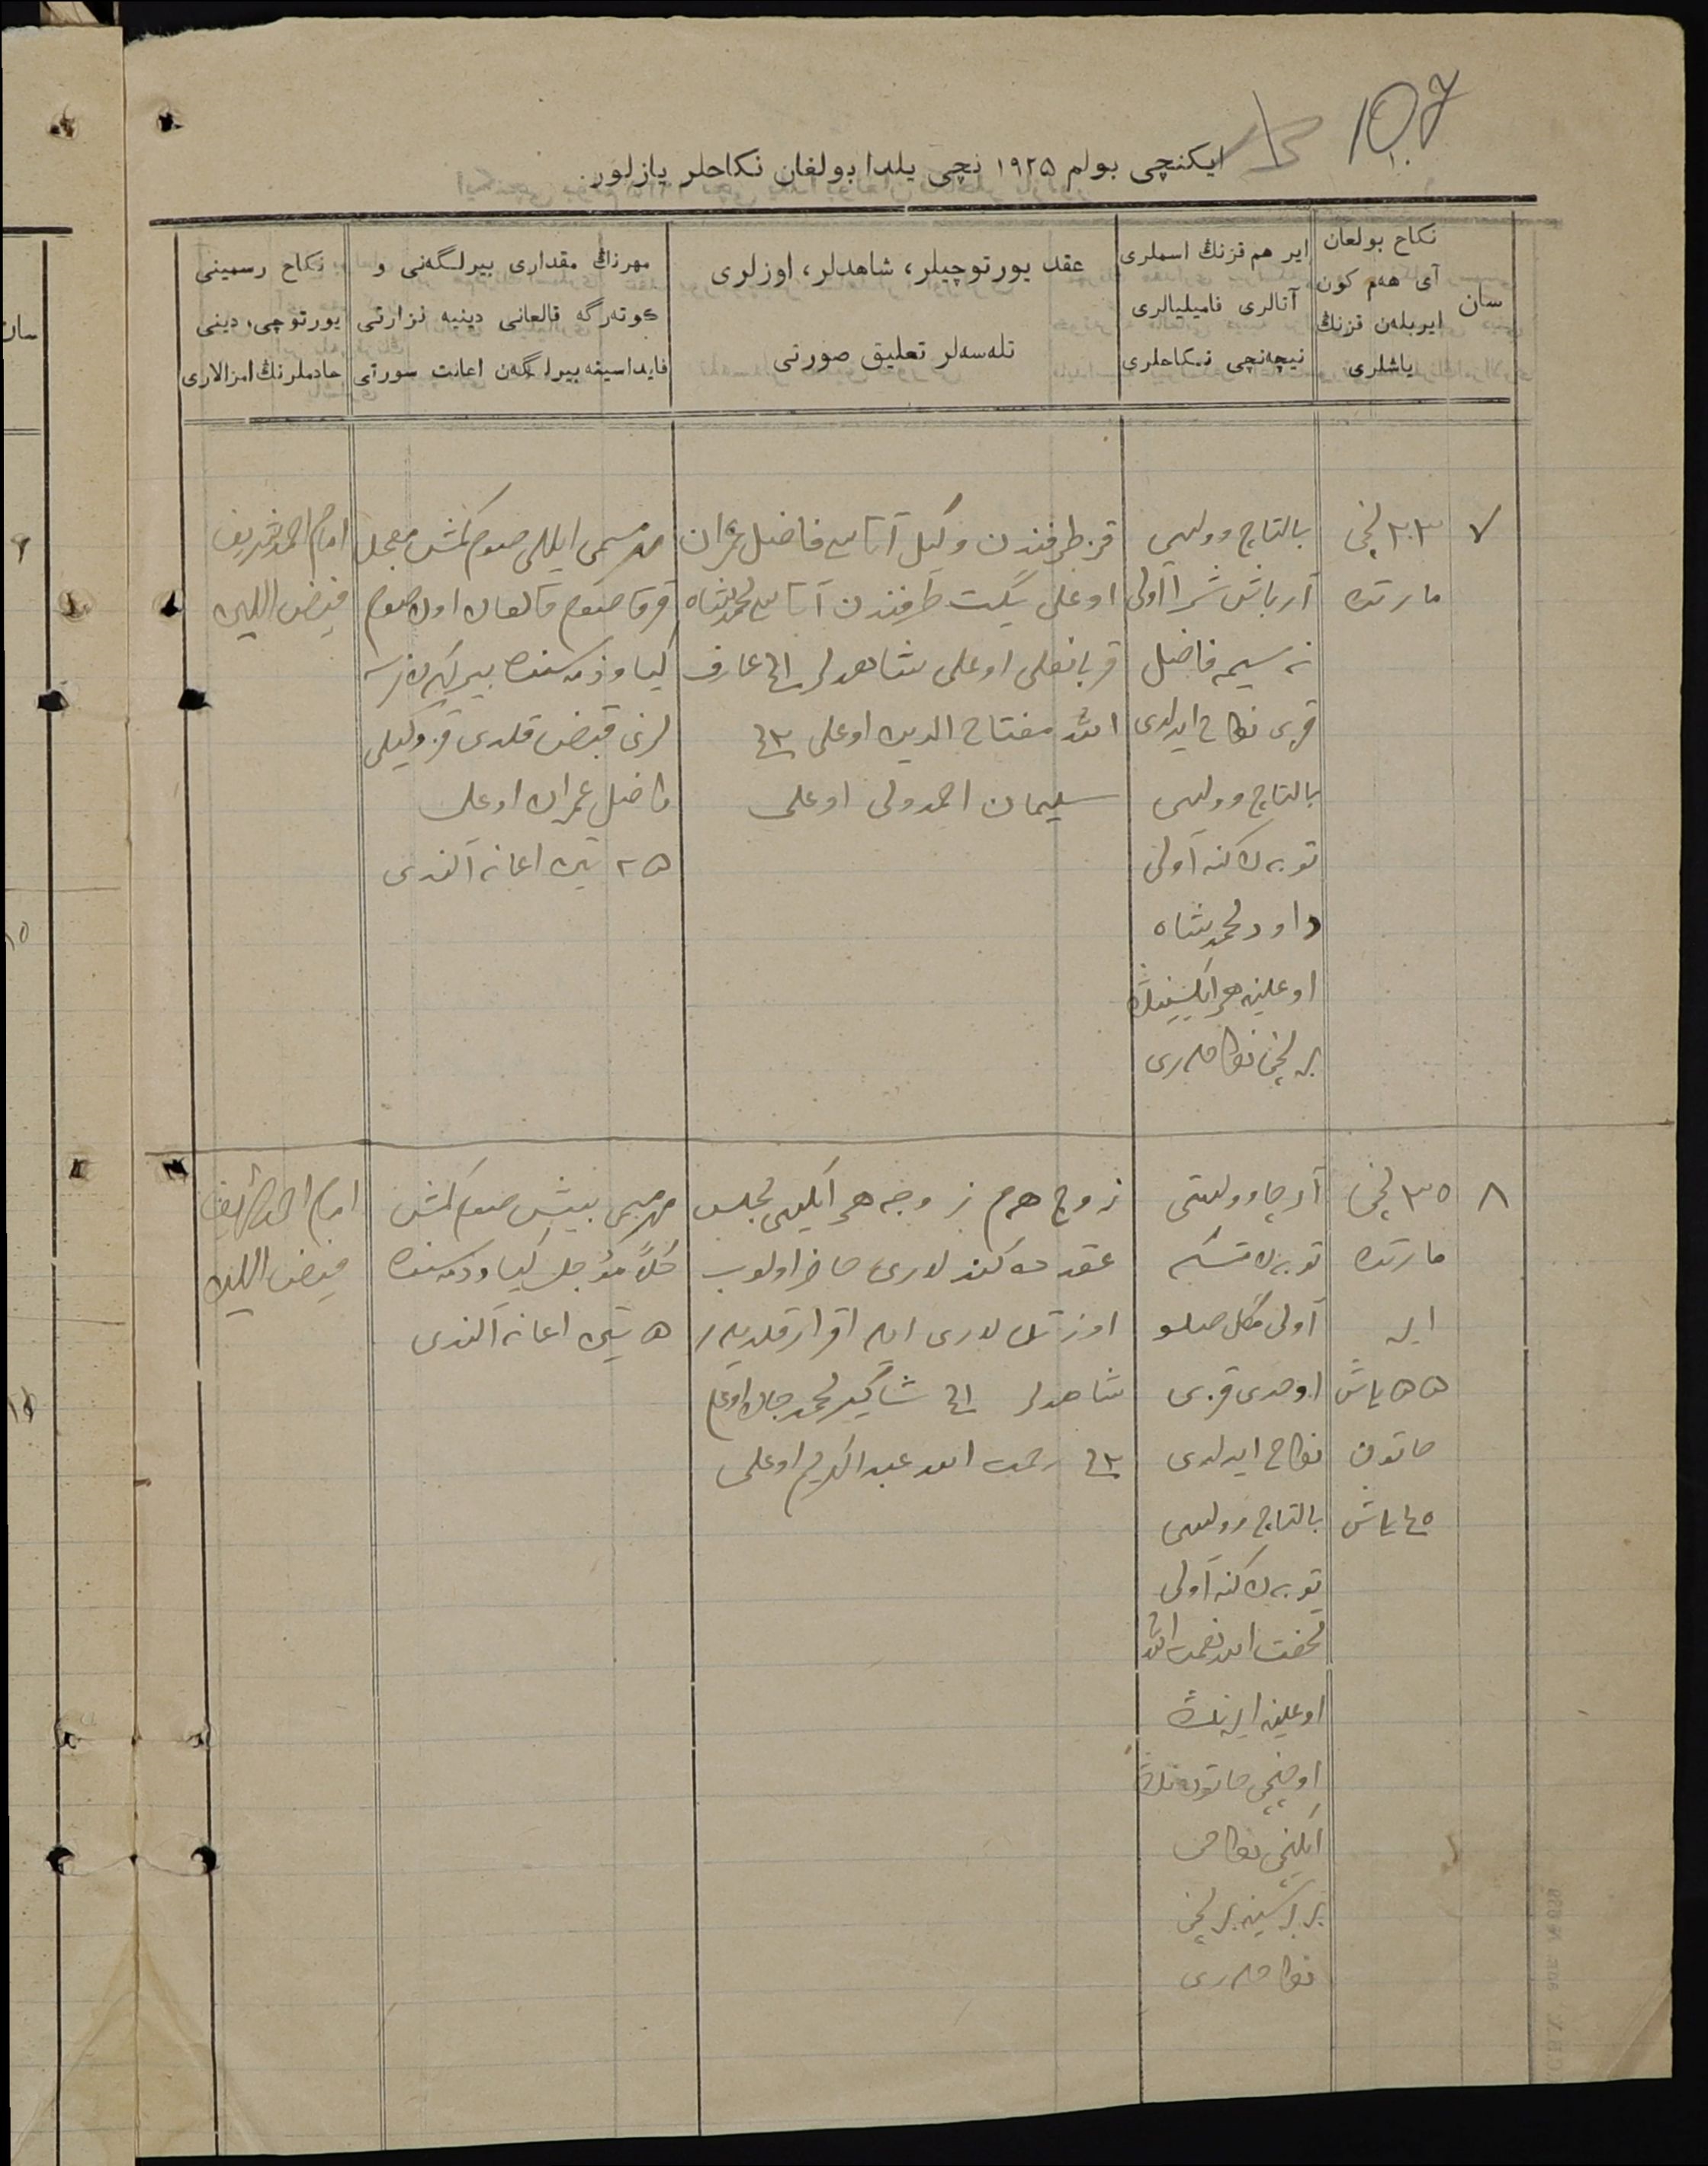 107
ایکنچی بولم ۱۹۲۵ نچی یلدا بولغان نکاحلر یازلور.
سان
نکاح بولعان
آی هەم کون
ایربلەن قزنڭ
یاشلری
ایر هم قزنڭ اسملری
آتالری فامیلیالری
نیچەنچی نکاحلری
عقد یورتوچیلر، شاهدلر، اوزلری
تلەسەلر تعلیق صورتی
مهرنڭ مقداری بیرلگەنی و
کوتەرگە قالعانی دینیه نزارتی
فایداسینه بیرلگەن اعانت سورتی
نکاح رسمینی
یورتوچی، دینی
خادملرنڭ امزالاری
۷
۲۳ نچی
مارتده
بالتاچ وولسی
آرباش شرا اولی
نسیمه فاضل
قزی نکاح ایدلدی
بالتاچ وولسی
توبەن کنه آولی
داود محمدشاه
اوغلینه هر ایکیسینڭ
برنچی نکاحلری
قز طرفندن وکیل آتاسی فاضل عمران
اوغلی یگت طرفندن آتاسی محمدشاه
قربانعلی اوغلی شاهدلر ۱نچی عارف
الله مفتاح الدین اوغلی ۲نچی
سلیمان احمدولی اوغلی
مهر مسمی ایللی صوم کمش معجل
قرق صوم قالغان اون صوم
کیاو ذمه سنده بیرلگەن نرسه
لرنی قبض قلدی قز وکیلی
فاضل عمران اوغلی
۲۵ تین اعانه آلندی
امام احمدشریف
فیض اللین
۸
۲۵ نچی
مارتده
ایر
۵۵ یاش
خاتون
۴۵ یاش
آرچا وولستی
توبەن
آولی گل صلو
اوحدی قزی
نکاح ایدلدی
بالتاچ وولسی
توبەن کنه آولی
تحفت الله نعمت الله
اوغلینه ایرنڭ
اوچنچی خاتوننڭ
ایکنچی نکاحی
بر برسینه برنچی
نکاحلری
زوج هم زوجه هر ایکیسی مجلس
عقد ده کندلاری حاضر اولوب
اوز تللاری ایله اقرار قلدیلر
شاهدلر ۱نچی شاکر محمدجان اوغلی
۲نچی رحمت الله عبدالکریم اوغلی
مهر مسمی بیش صوم کمش
کلاً مؤجل کیاو ذمه سنده
۵ تین اعانه آلندی
امام احمدشریف
فیض اللین